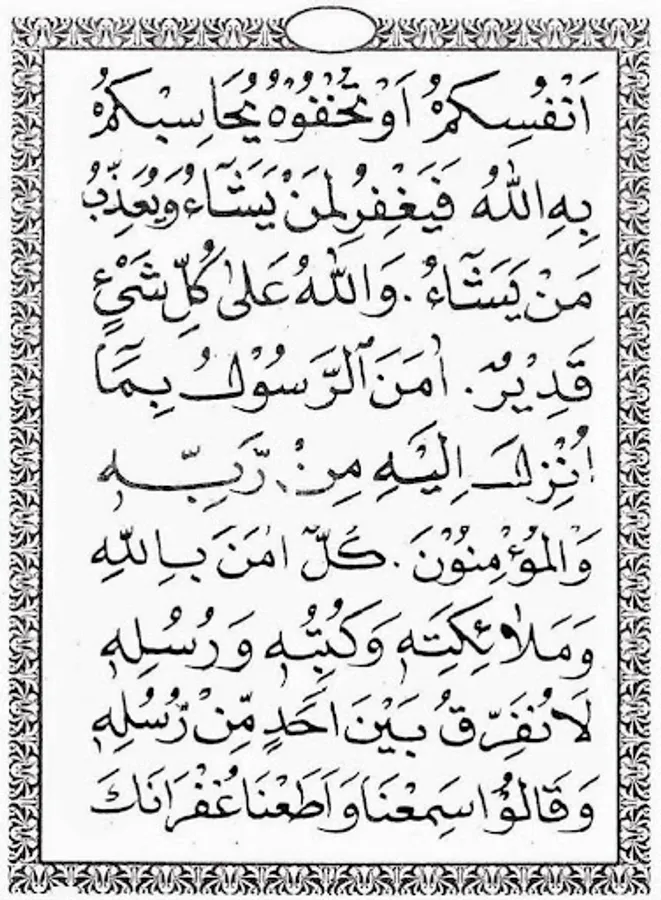 اَنْفُسِكُمْ اَوْ تُخْفُوْهُ يُحَاسِبْكُمْ
بِهِ اللّٰهُ فَيَغْفِرُ لِمَنْ يَشَآءُ وَيُعَذِّبُ
مَنْ يَشَآءُ . وَاللّٰهُ عَلٰى كُلِّ شَيْءٍ
قَدِيْرٌ . اٰمَنَ الرَّسُوْلُ بِمَآ
اُنْزِلَ اِلَيْهِ مِنْ رَّبِّهٖ
وَالْمُؤْمِنُوْنَ . كُلٌّ اٰمَنَ بِاللّٰهِ
وَمَلَائِكَتِهٖ وَكُتُبِهٖ وَرُسُلِهٖ
لَا نُفَرِّقُ بَيْنَ اَحَدٍ مِّنْ رُّسُلِهٖ
وَقَالُوْا سَمِعْنَا وَاَطَعْنَا غُفْرَانَكَ